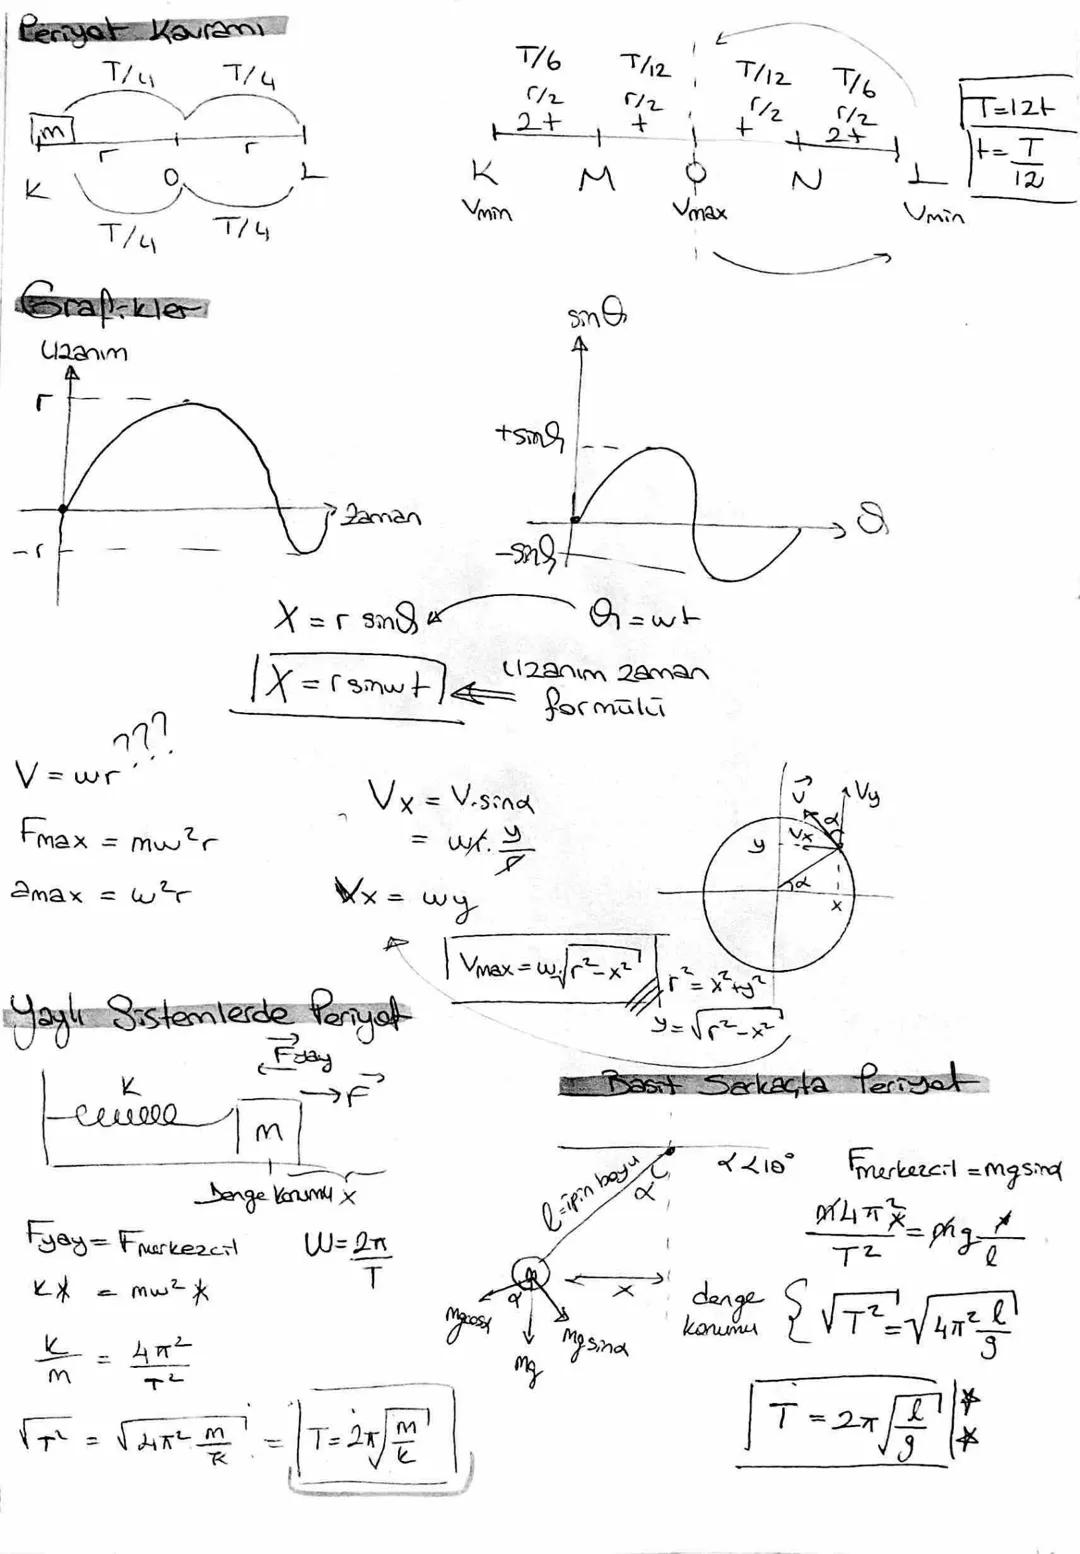 Periyot Kavramı
T/4 T/4
m
r r
K O L
T/4 T/4
T/6 T/12 T/12 T/6
r/2 r/2 r/2 r/2
2t t t 2t
K M O N L
Vmin Vmax Vmin
T=12t
t= T/12
Grafikler
Uzanım
r
-r
Zaman
sinθ
+sinθ
-sinθ
θ
X = r sinθ
θ = wt
X = r sinwt
Uzanım zaman
formülü
???
V = wr
Fmax = mw²r
amax = w²r
Vx = V.sinα
= wr. y/r
Vx = wy
Vmax = w√r²-x²
r² = x²+y²
y = √r²-x²
V Vy
α
y Vx
α
x
Yaylı Sistemlerde Periyot
Fyay
K F
m
Denge konumu x
Fyay = Fmerkezcil W = 2π/T
kx = mw²x
k/m = 4π²/T²
√T² = √4π² m/k = T = 2π√m/k
Basit Sarkaçta Periyot
α<10°
l=ipin boyu
α
m
α
x
mgcosα
mg
mgsinα
Fmerkezcil = mgsinα
m4π²x/T² = mg x/l
denge
konumu
√T² = √4π² l/g
T = 2π√l/g